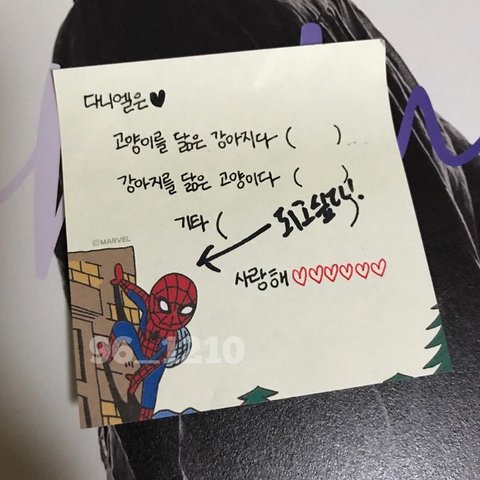 다니엘은♥
고양이를 닮은 강아지다 (      )
강아지를 닮은 고양이다 (      )
기타 (      )
되고싶다!
©MARVEL
사랑해♡♡♡♡♡♡
96_1210